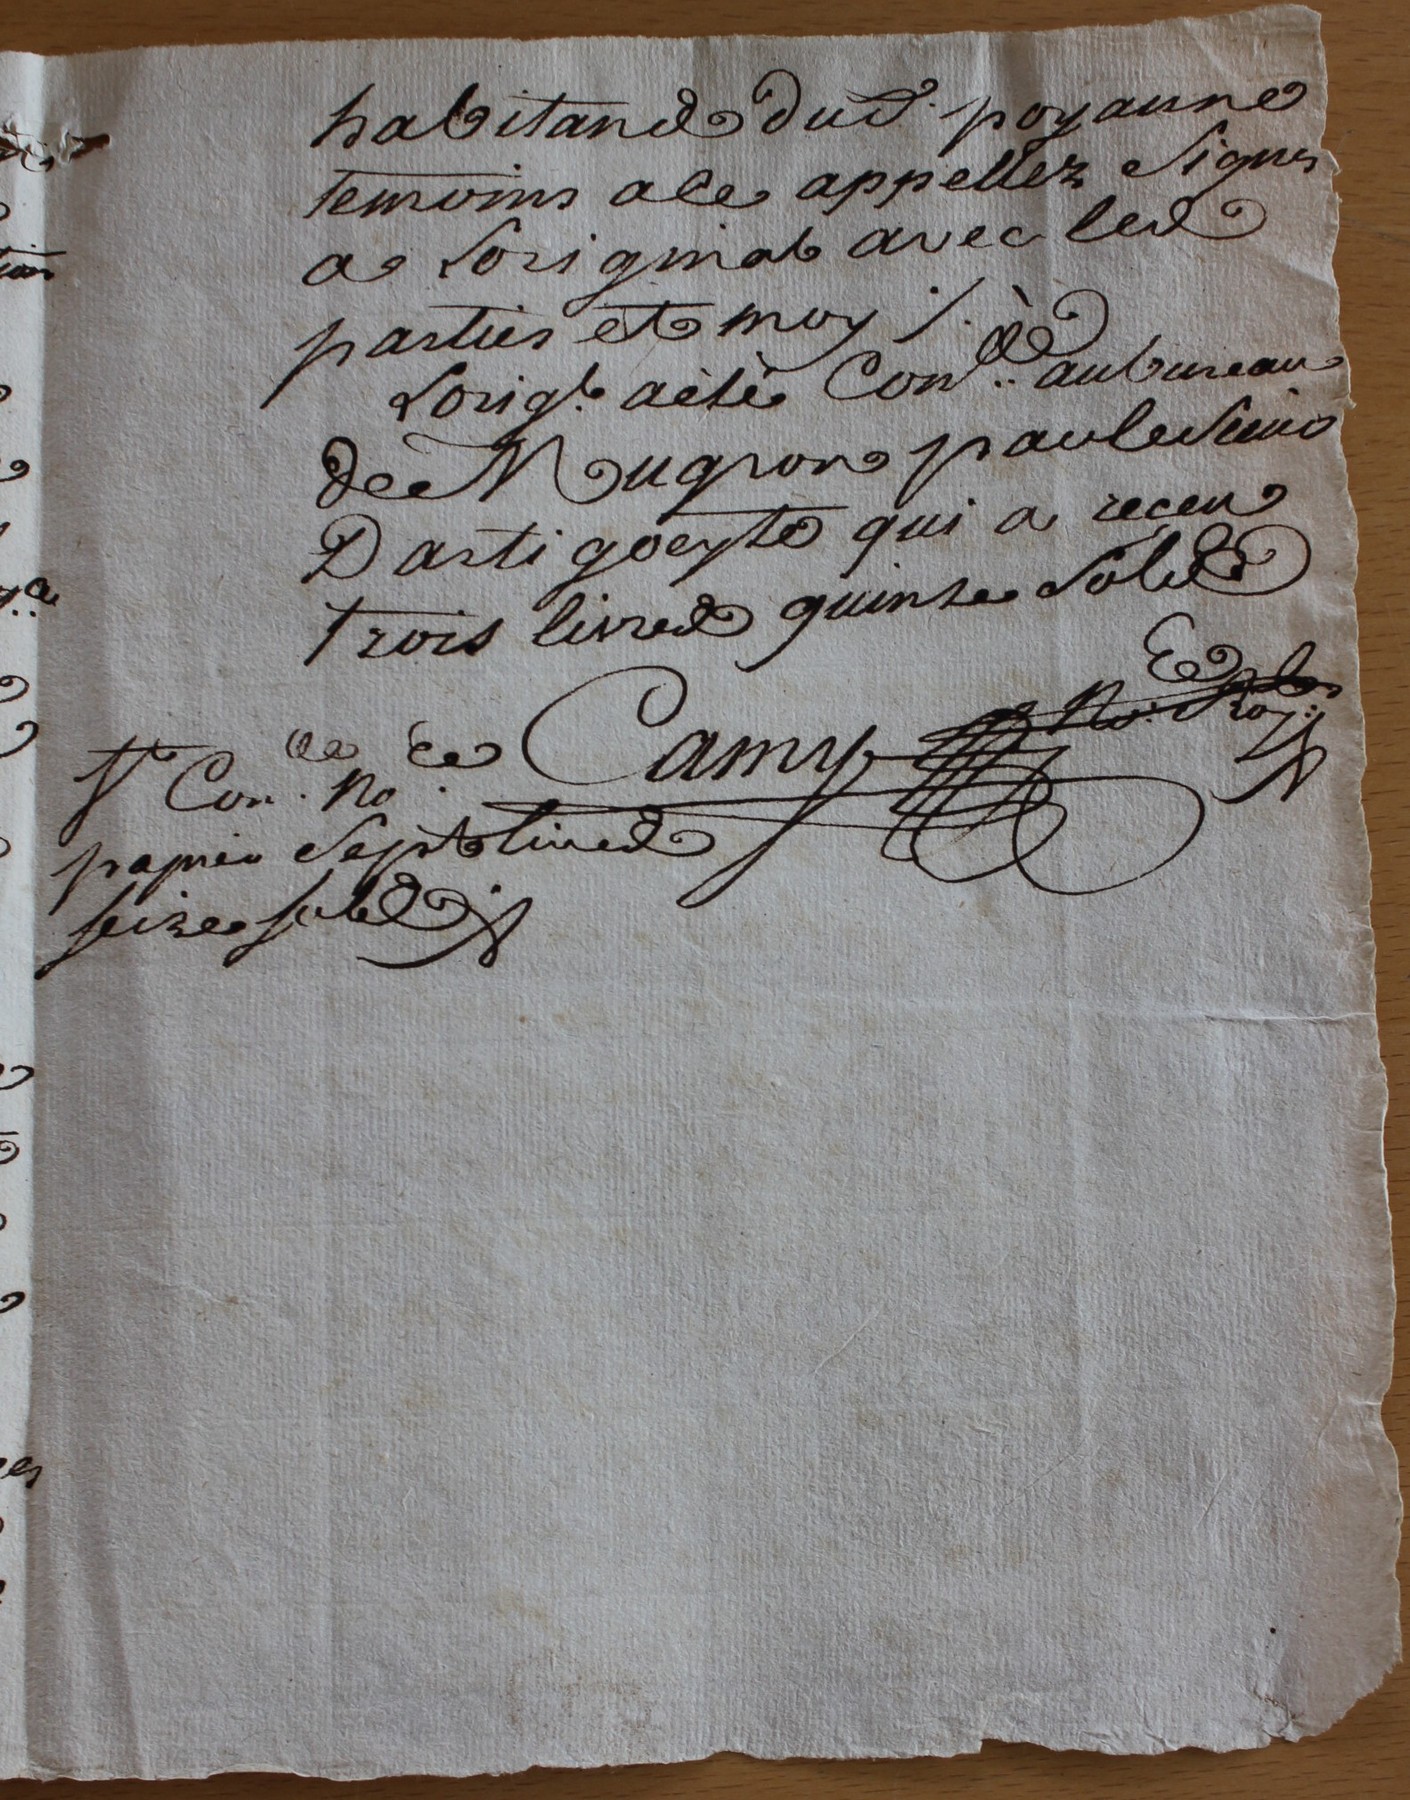 habitans dud. poyanne
temoins a ce appellez signes
a Loriginal avec les
parties et moy ./.
Lorigl. a été Conlle. au bureau
de Mugron par le sieur
Dartigoeyte qui a receu
trois livres quinse sols
Camy No. Roy.
pr. Con.lle No. ce
papier sept livres
seise sols